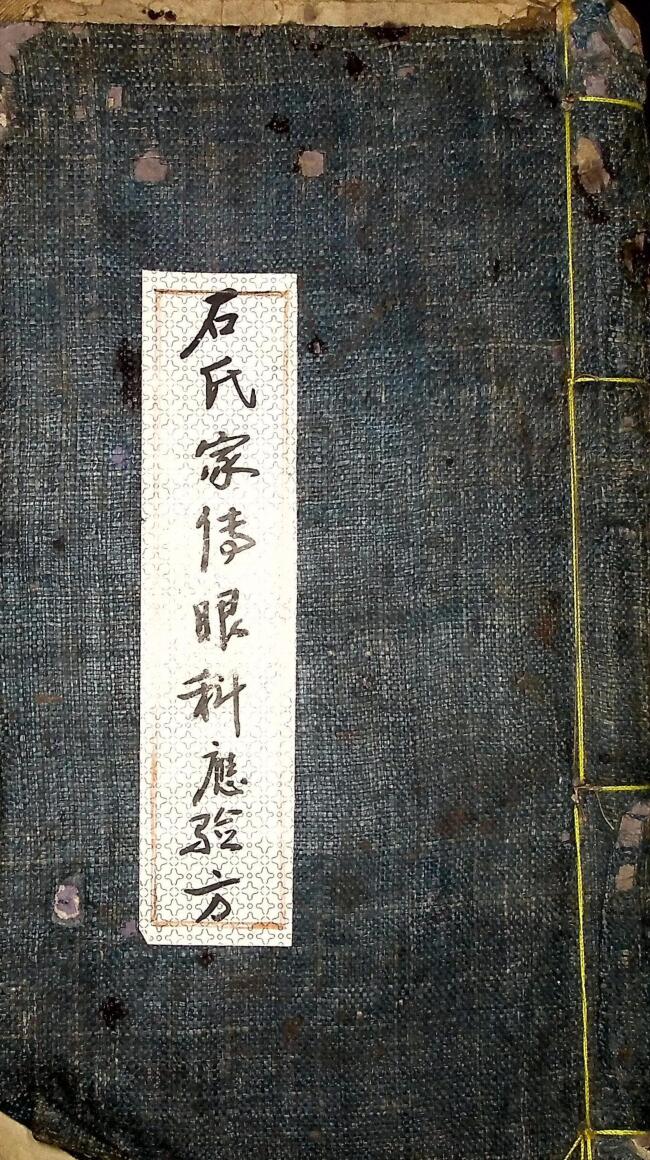 石氏家傳眼科應验方